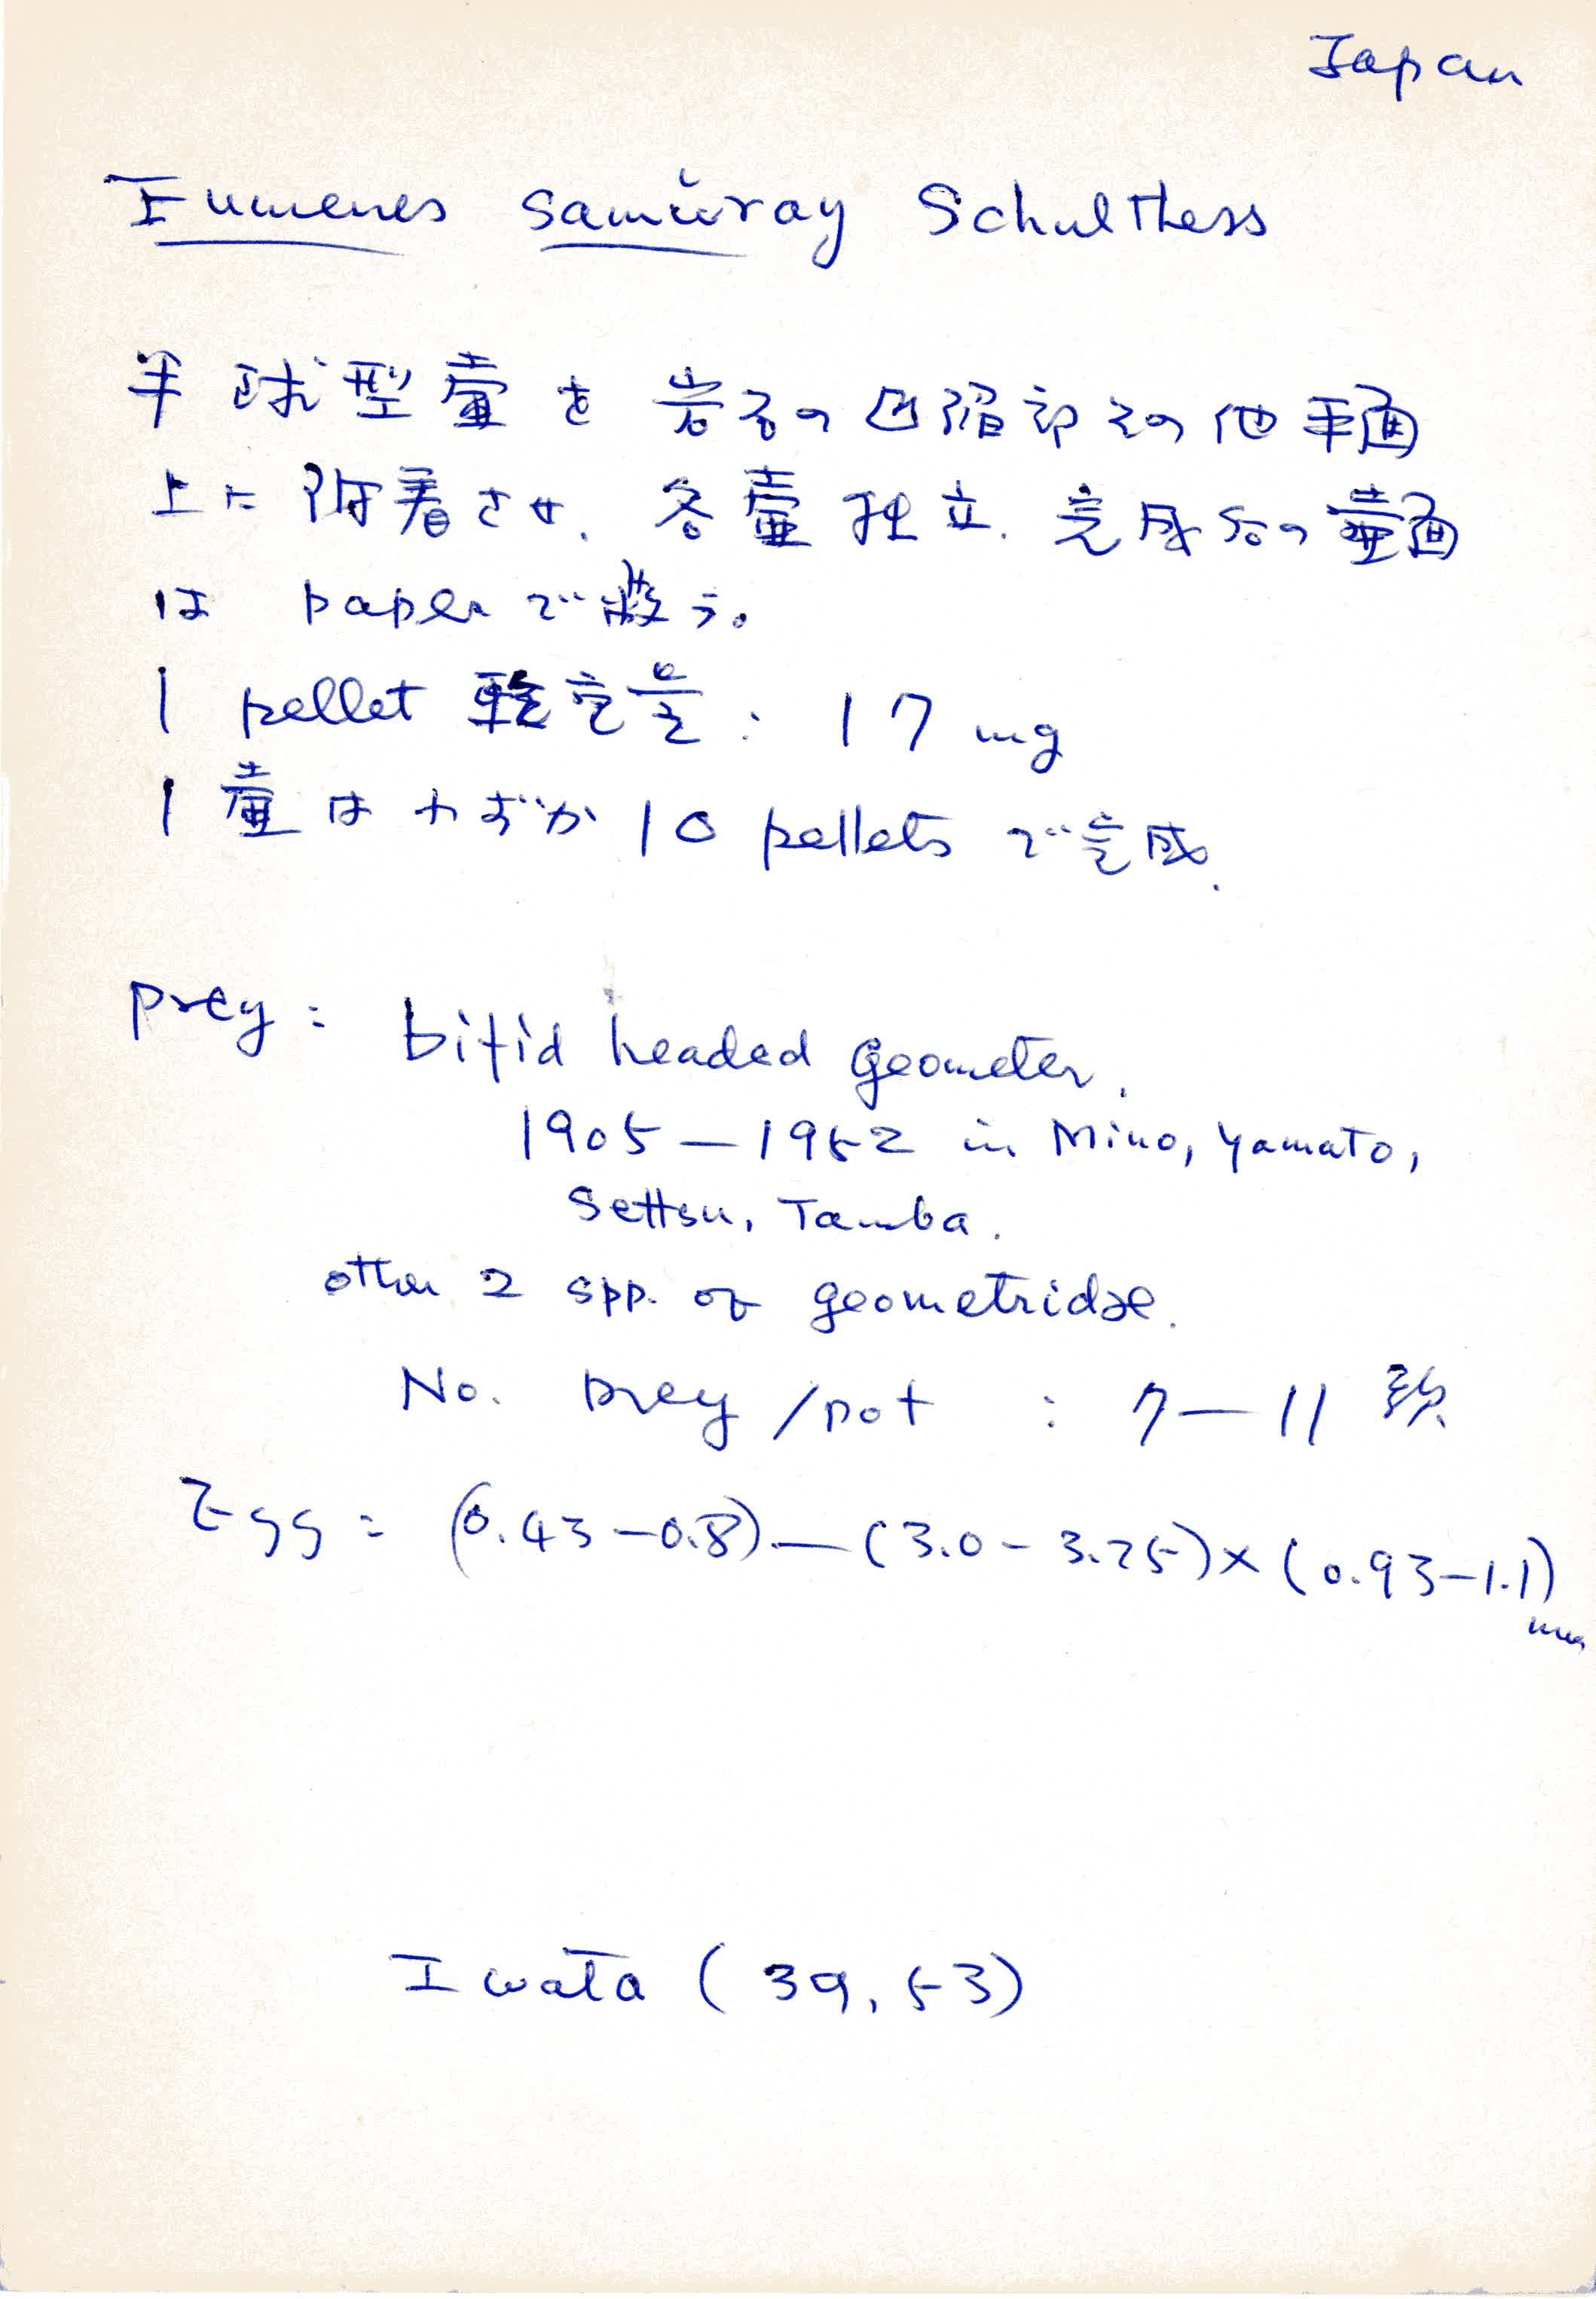 Japan
Eumenes samuray Schulthess
半球型壷を岩石の凹陥部その他平面
上に附着させ、各壷独立.完成后の壷面
は paperで被う。
1 pellet 乾定量: 17 mg
1壷はわずか 10 pellets で完成.
Prey: bifid headed geometer.
1905-1952 in Mino, Yamato,
Settsu, Tamba.
other 2 spp. of geometridae.
No. prey/pot : 7-11 頭
Egg = (0.43-0.8)-(3.0-3.25)×(0.93-1.1)
mm
Iwata (39, 53)